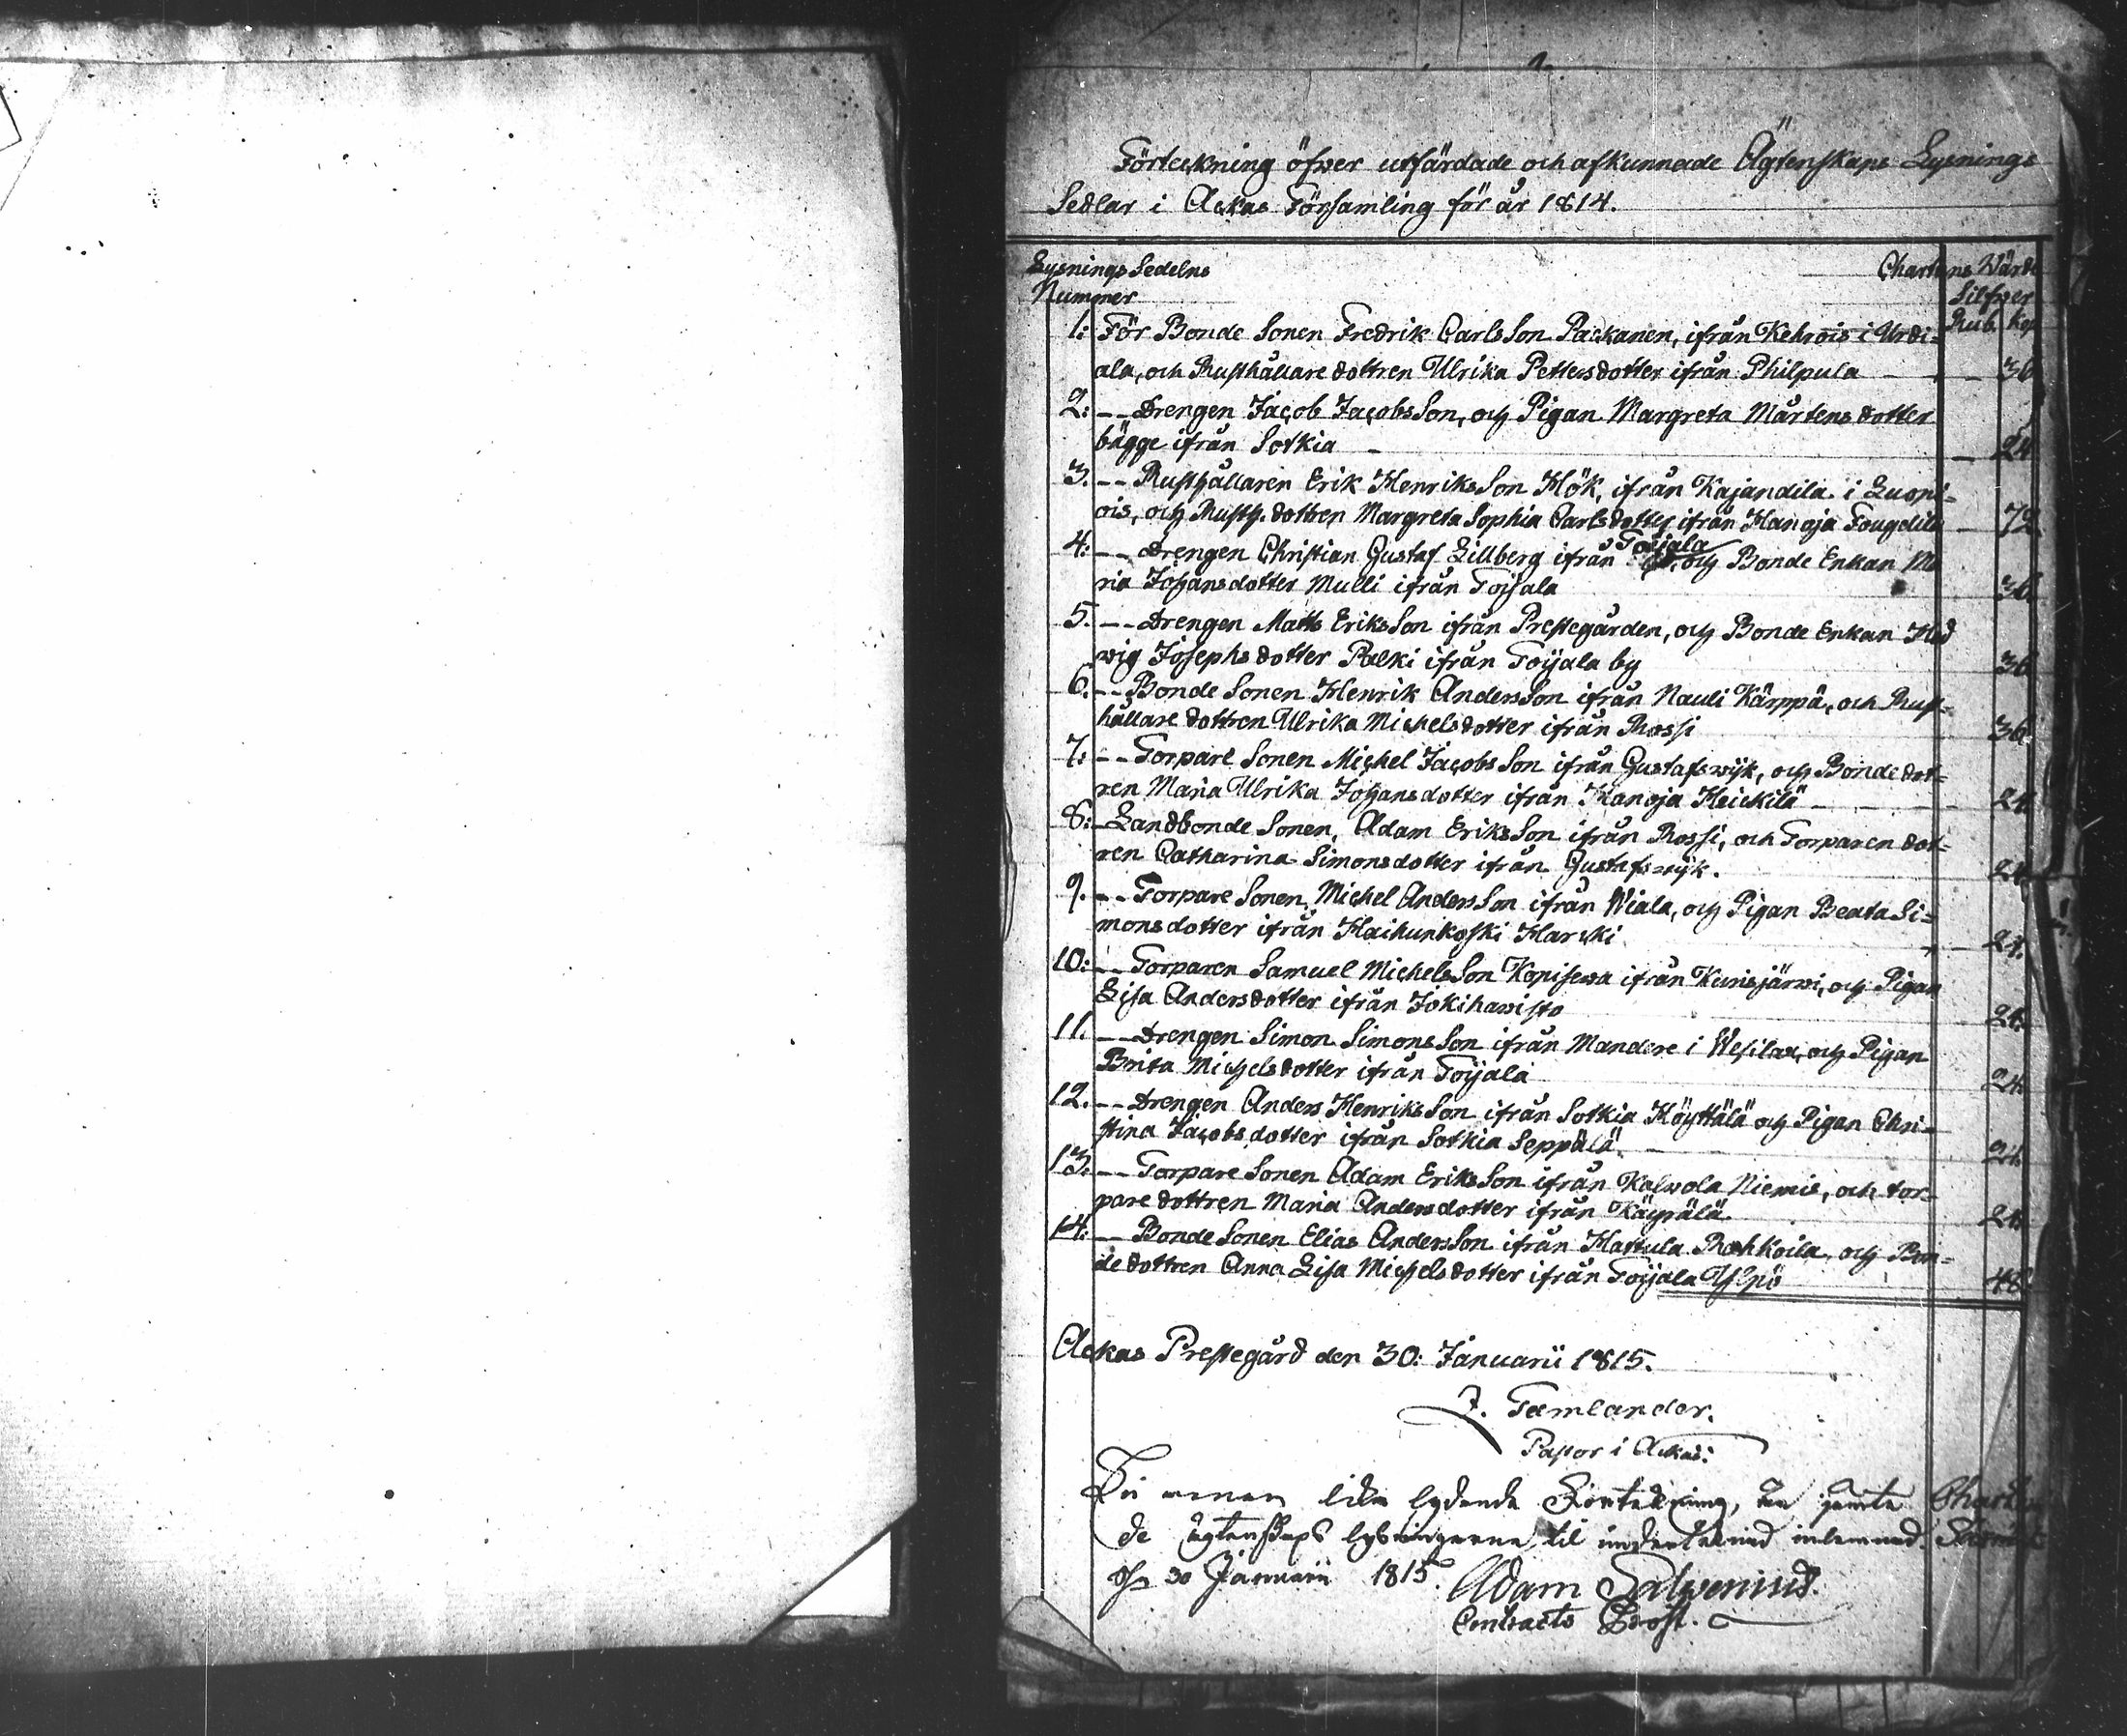 Förteckning öfwer utfärdade och afkunnade Ägtenskaps Lysnings
Sedlar i Ackas Församling för år 1814.
Lysnings Sedelns Chartans Wärde
Nummer Silfwer
Rub. Kop
1: För Bonde Sonen Fredrik Carls Son Packanen, ifrån Kehrois i Urdi=
ala, och Rusthållare dottren Ulrika Pettersdotter ifrån Philpula — 36
2: -- Drengen Jacob Jacobs Son, och Pigan Margreta Mårtens dotter
bägge ifrån Sotkia — 24
3. -- Rusthållaren Erik Henriks Son Hök, ifrån Kajandila i Luopi=
ois, och Rusth. dottren Margreta Sophia Carlsdotter ifrån Kanoja Fougdila — 72
4: -- Drengen Christian Gustaf Lillberg ifrån Toijala och Bonde Enkan Ma
ria Johansdotter Mulli ifrån Toijala 36
5. -- Drengen Matts Eriks Son ifrån Prestegården, och Bonde Enkan Hed
wig Josephs dotter Palki ifrån Toijala by 36
6. -- Bonde Sonen Henrik Anders Son ifrån Nauli Kärppä, och Rust=
hållare dottren Ulrika Michelsdotter ifrån Rossi 36
7: -- Torpare Sonen Michel Jacobs Son ifrån Gustafswijk, och Bonde dot=
ren Maria Ulrika Johansdotter ifrån Kanoja Heickilä — 24
8: - Landbonde Sonen, Adam Eriks Son ifrån Rossi, och Torparen dot=
ren Catharina Simonsdotter ifrån Gustafswijk. 24
9. -- Torpare Sonen Michel Anders Son ifrån Wiala, och Pigan Beata Si=
monsdotter ifrån Haihunkoski Harski 24.
10: -- Torparen Samuel Michels Son Kopisewa ifrån Kurisjärwi, och Pigan
Lisa Andersdotter ifrån Jokihawisto 24
11. -- Drengen Simon Simons Son ifrån Mandere i Wesilax, och Pigan
Brita Michelsdotter ifrån Toijala 24.
12. -- Drengen Anders Henriks Son ifrån Sotkia Höyttälä och Pigan Chri=
stina Jacobs dotter ifrån Sotkia Seppälä. 24
13. -- Torpare Sonen Adam Eriks Son ifrån Kalwola Niemis, och tor=
pare dottren Maria Andersdotter ifrån Käyrälä 24
14: -- Bonde Sonen Elias Anders Son ifrån Hattula Rahkoila, och Bon=
de dottren Anna Lisa Michelsdotter ifrån Toijala Yspö 48
Ackas Prestegård den 30: Januarii 1815.
J. Tamlander.
Pastor i Ackas.
lika lydande Förtekning, är jemte
de ägtenskaps lysningarne til undertecknad inlemnad.
30 Januarii 1815. Adam Salwenius.
Contracts Prost.